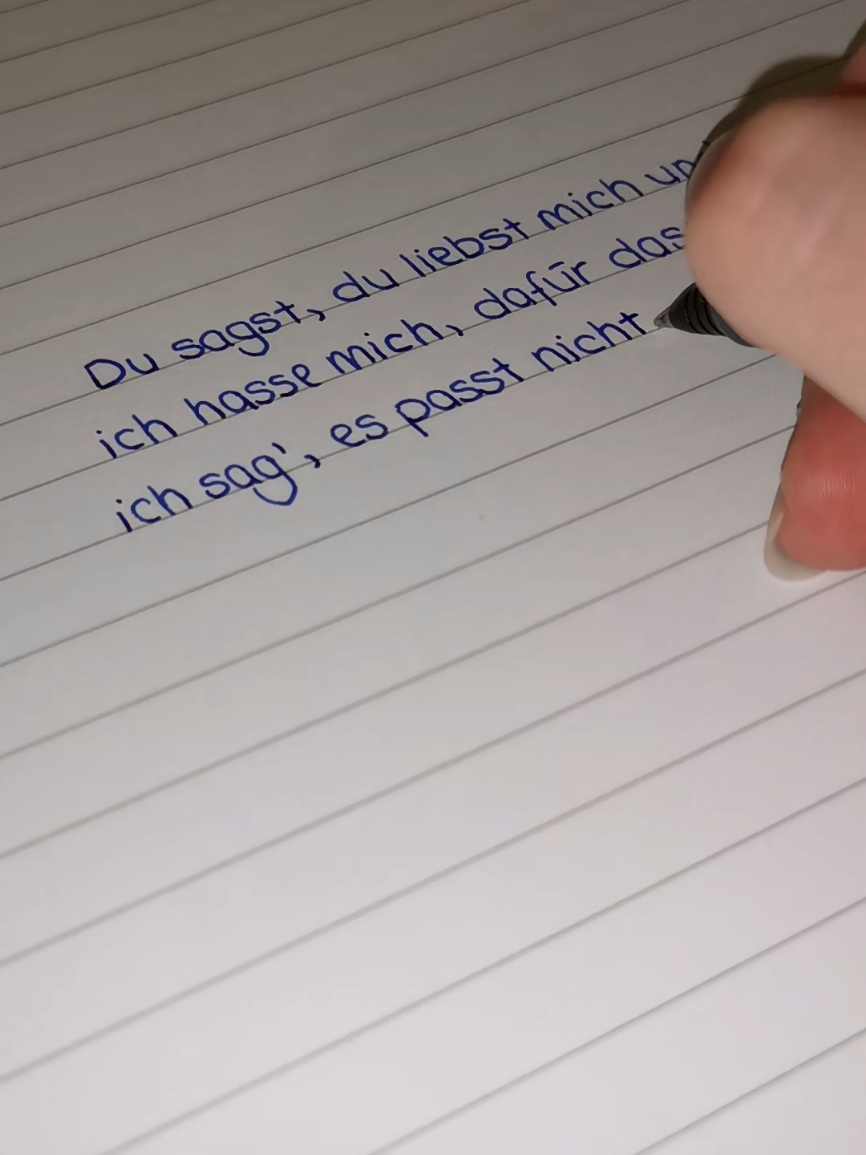 Du sagst, du liebst mich un
ich hasse mich, dafür das
ich sag', es passt nicht